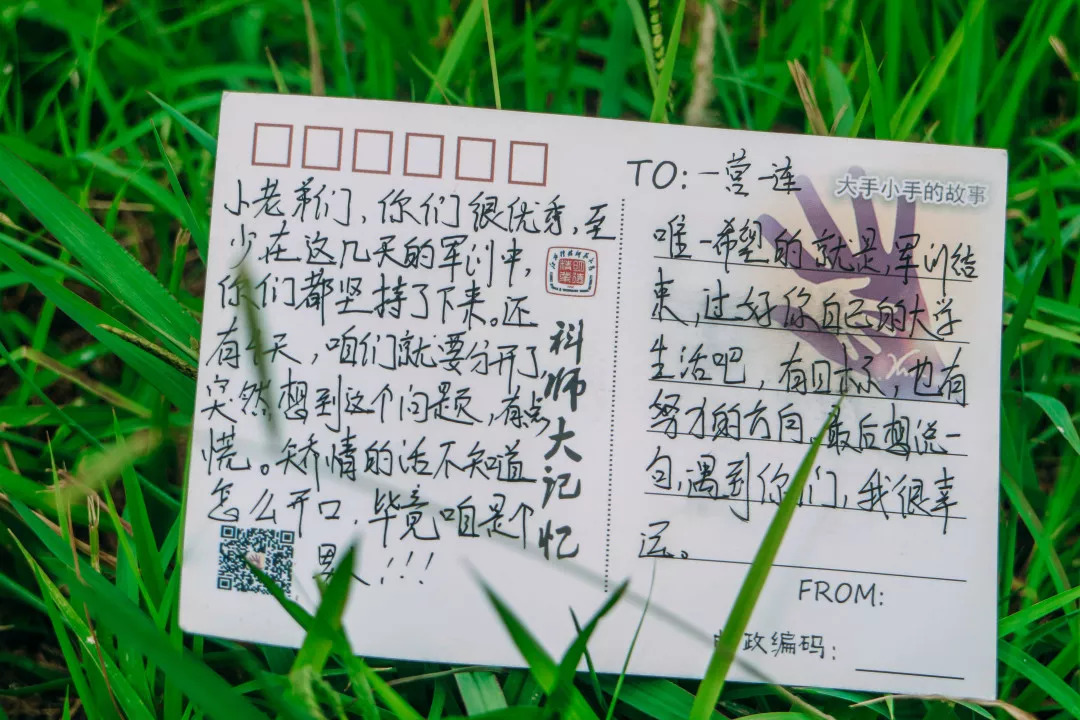 小老弟们、你们很优秀,至
少在这几天的军训中,
你们都坚持了下来。还
有天,咱们就要分开了,
突然想到这个问题,有点
慌。矫情的话不知道
怎么开口,毕竟咱是个
男人!!!
科师大记忆
TO:一营一连
大手小手的故事
唯一希望的就是,军训结
束,过好你自己的大学
生活吧,有目标也有
努力的方向,最后想说一
句,遇到你们,我很幸
运。
FROM:
邮政编码: